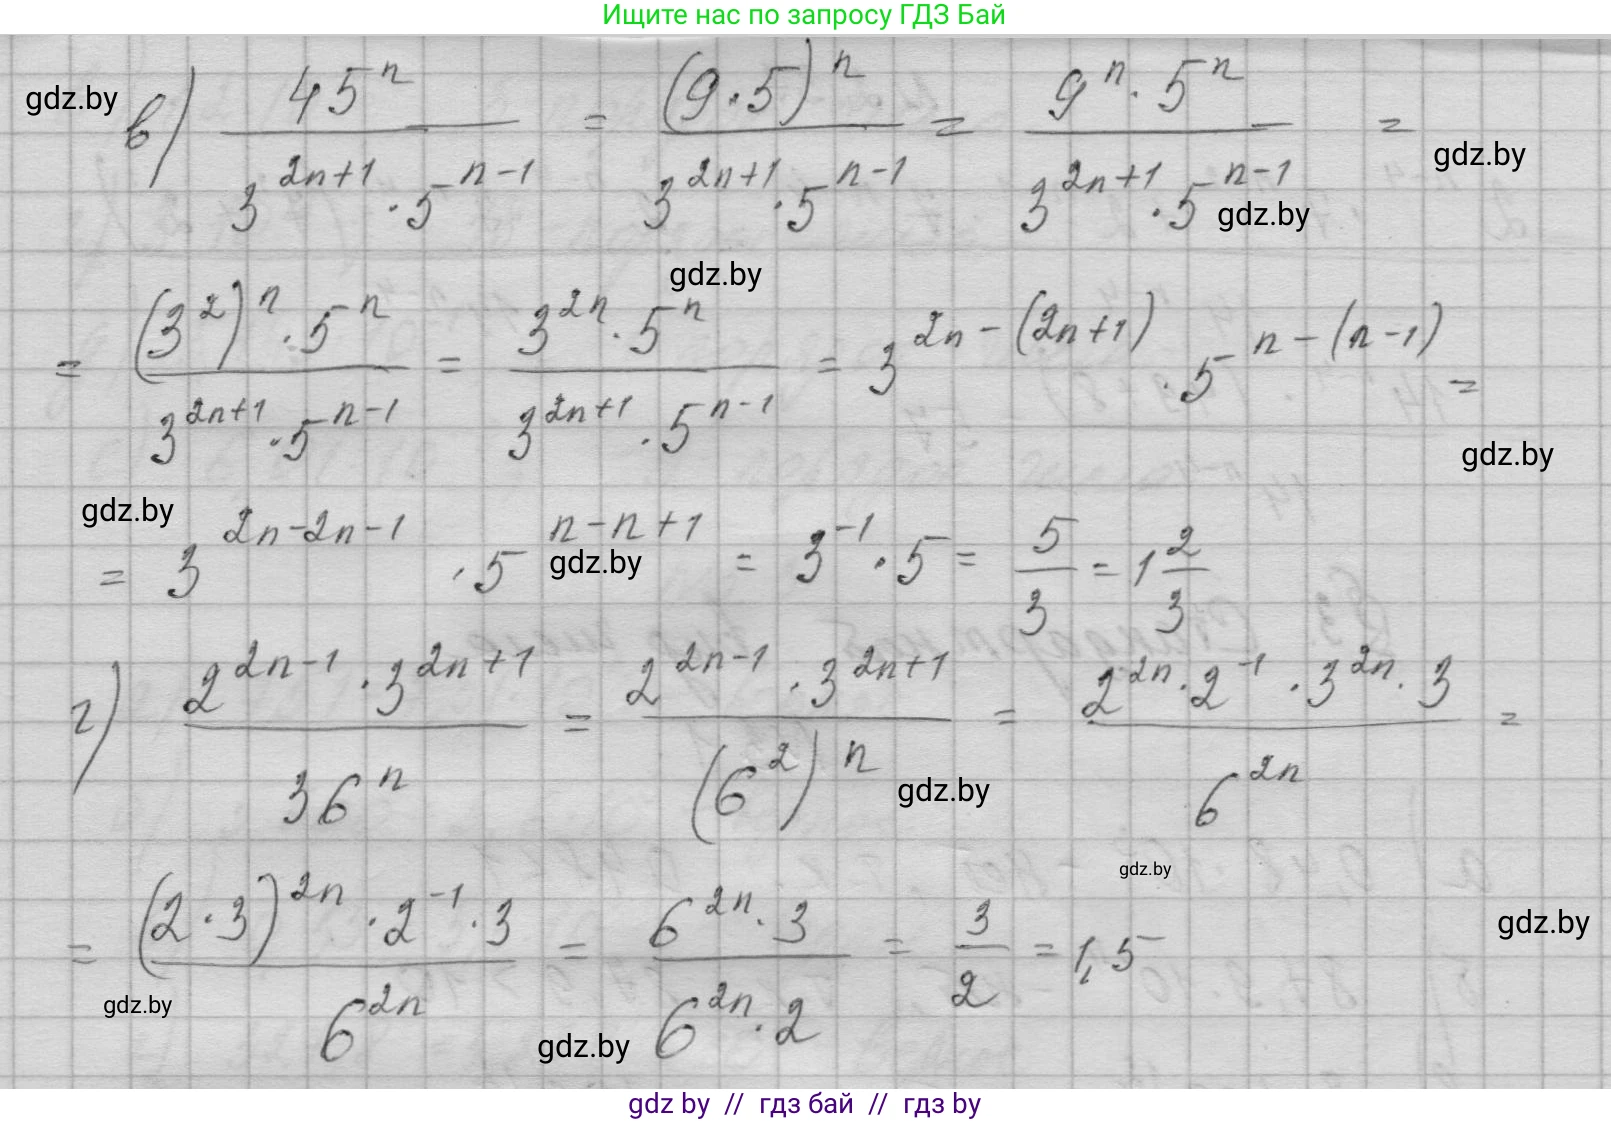 Ищите нас по запросу ГДЗ Бай
gdz.by
в) 45^n / (3^(2n+1) · 5^(n-1)) = (9·5)^n / (3^(2n+1) · 5^(n-1)) = 9^n · 5^n / (3^(2n+1) · 5^(n-1)) =
gdz.by
gdz.by
gdz.by
= (3^2)^n · 5^n / (3^(2n+1) · 5^(n-1)) = 3^(2n) · 5^n / (3^(2n+1) · 5^(n-1)) = 3^(2n-(2n+1)) · 5^(n-(n-1)) =
gdz.by
gdz.by
= 3^(2n-2n-1) · 5^(n-n+1) = 3^(-1) · 5 = 5/3 = 1 2/3
gdz.by
г) 2^(2n-1) · 3^(2n+1) / 36^n = 2^(2n-1) · 3^(2n+1) / (6^2)^n = 2^(2n) · 2^(-1) · 3^(2n) · 3 / 6^(2n) =
gdz.by
gdz.by
= (2·3)^(2n) · 2^(-1) · 3 / 6^(2n) = 6^(2n) · 3 / (6^(2n) · 2) = 3/2 = 1,5
gdz.by
gdz.by
gdz.by
gdz by // гдз бай // гдз by